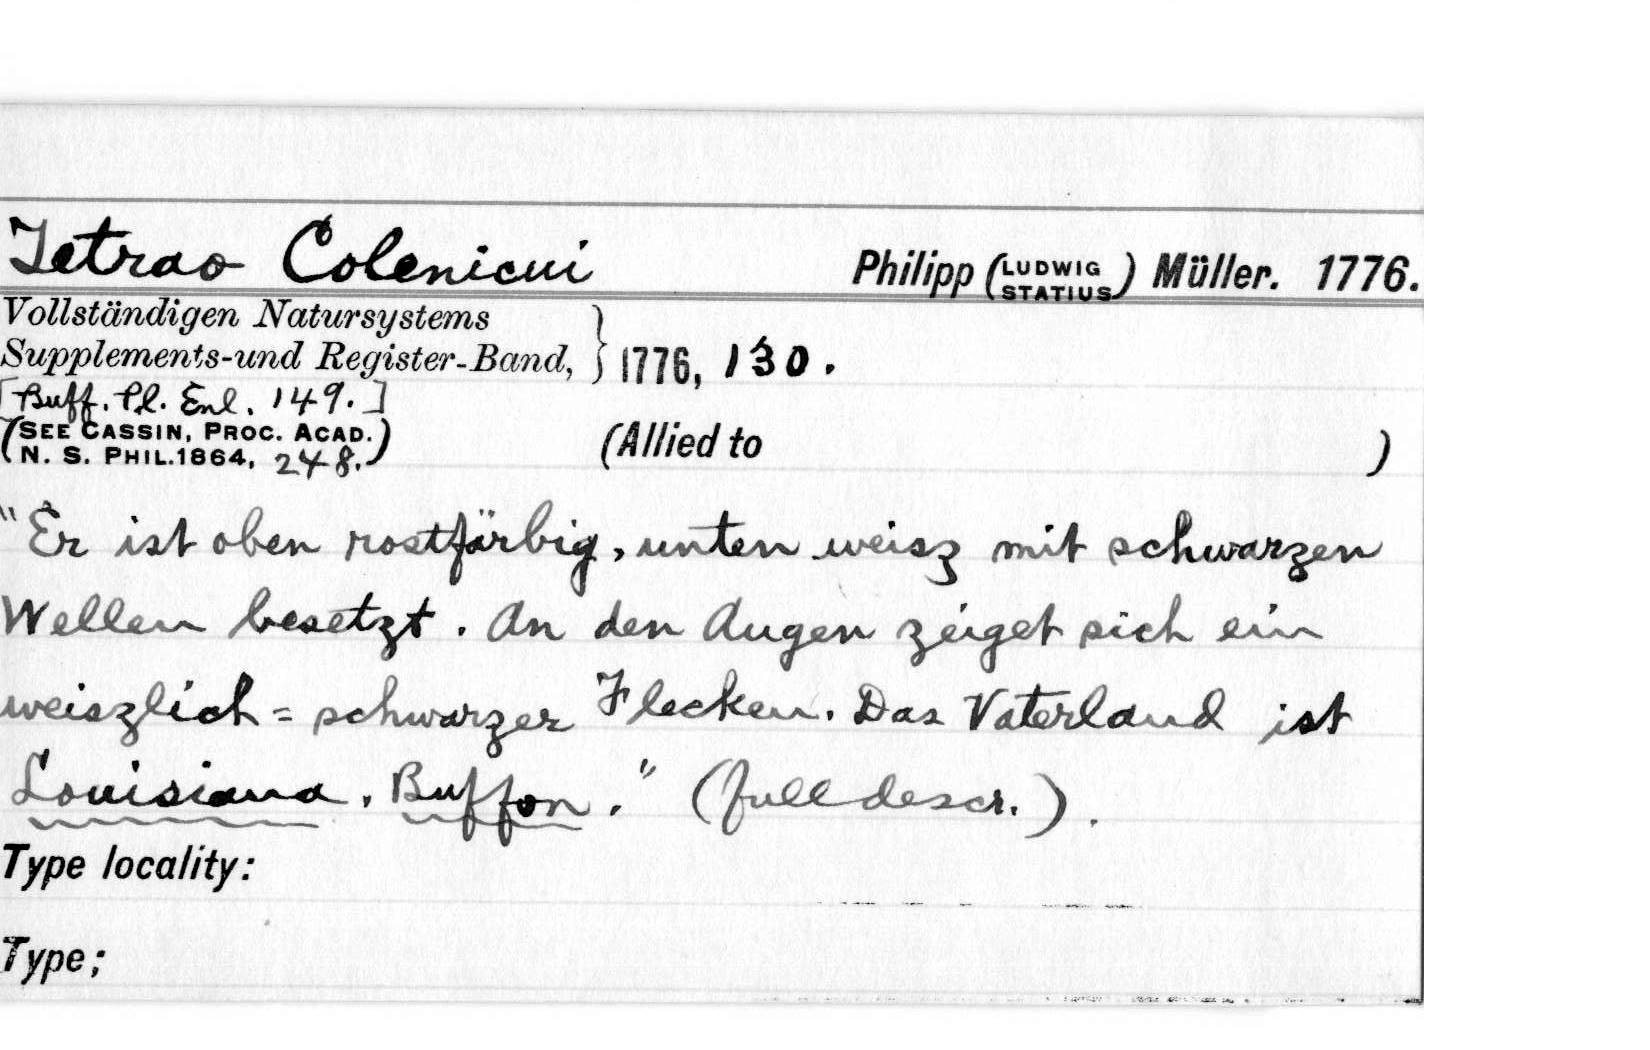 Tetrao Colenicui Philipp (LUDWIG STATIUS) Müller. 1776.
Vollständigen Natursystems
Supplements-und Register-Band, } 1776, 130.
[Buff. Pl. Enl. 149.]
(SEE CASSIN, PROC. ACAD.
N. S. PHIL. 1864, 248.) (Allied to )
"Er ist oben rostfärbig, unten weisz mit schwarzen
Wellen besetzt. An den Augen zeiget sich ein
weiszlich = schwarzer Flecken. Das Vaterland ist
Louisiana. Buffon." (full descr.).
Type locality:
Type;